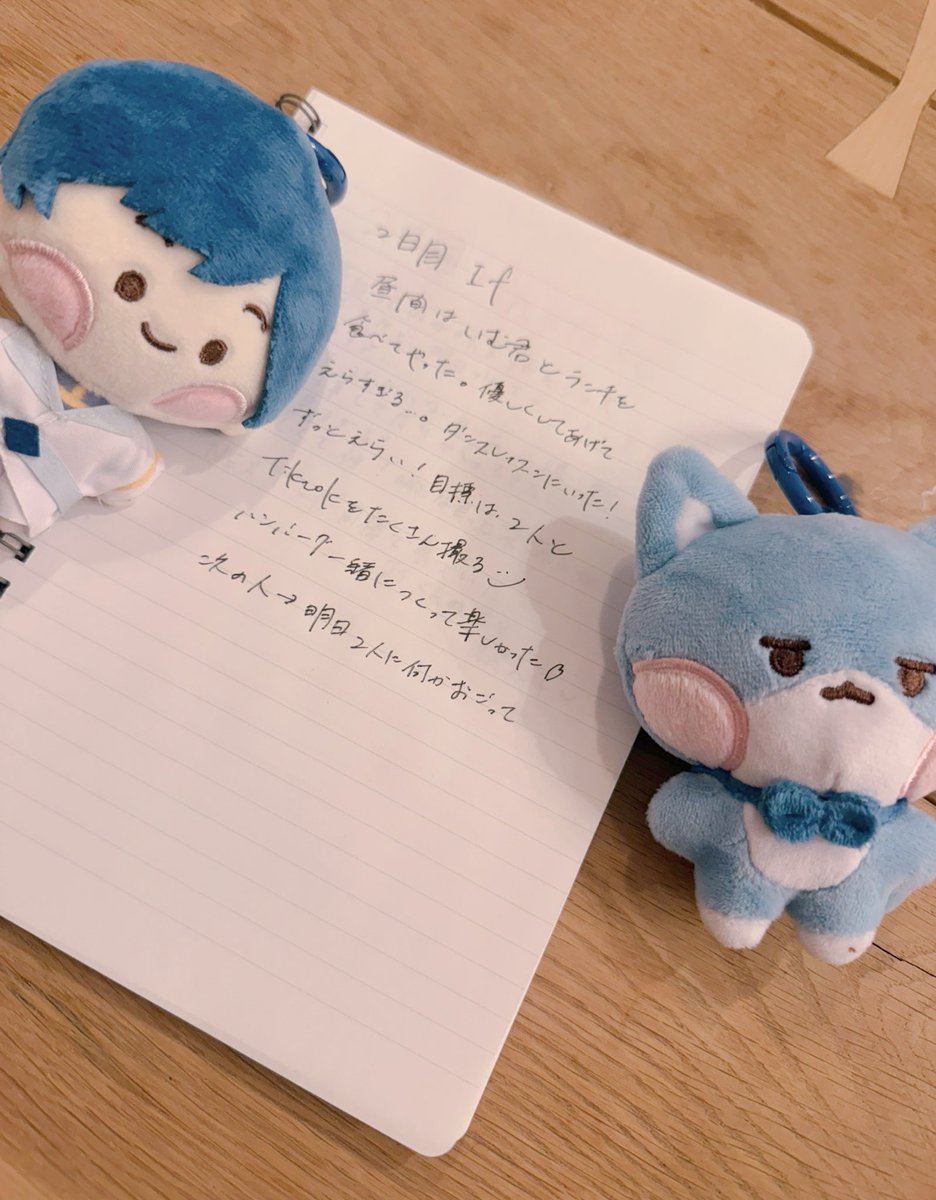 2日目 If
昼間はいむ君とランチを
食べてやった。優しくしてあげて
えらすぎる...。ダンスレッスンにいった!
ずっとえらい!目標は、2人と
TikTokをたくさん撮る
ハンバーグ一緒につくって楽しかった
次の人→明日2人に何かおごって